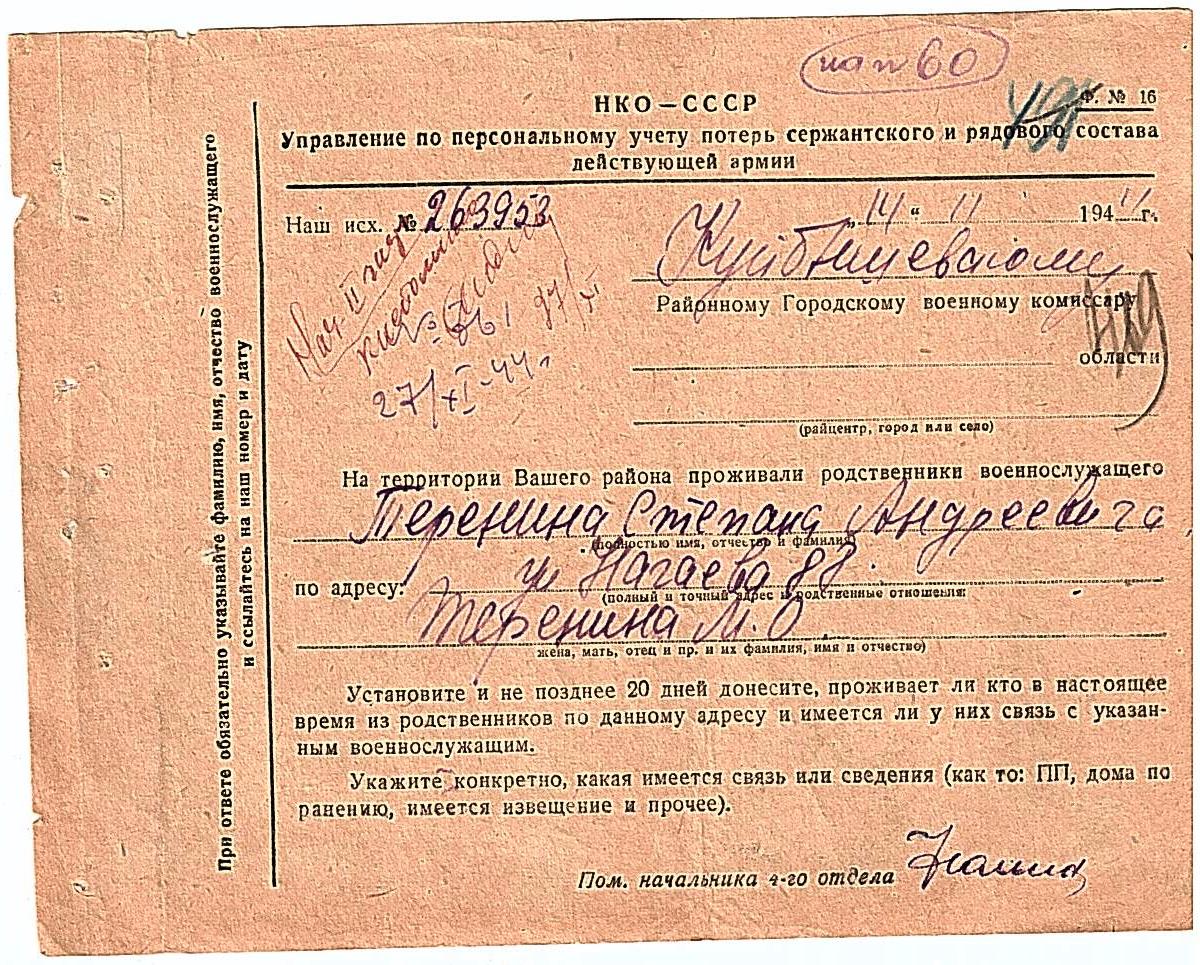 пап 60
НКО — СССР
Ф. № 16
Управление по персональному учету потерь сержантского и рядового состава
действующей армии
Наш исх. № 263953
„14“ 11 1944 г.
Куйбышевскому
Районному Городскому военному комиссару
области
(райцентр, город или село)
Нач II
№ 661
27/XI
27/XI-44
На территории Вашего района проживали родственники военнослужащего
Теренина Степана Андреевича
(полностью имя, отчество и фамилия)
по адресу: ул Нагаева 88.
(полный и точный адрес и родственные отношения:
Теренина М.О
жена, мать, отец и пр. и их фамилия, имя и отчество)
Установите и не позднее 20 дней донесите, проживает ли кто в настоящее
время из родственников по данному адресу и имеется ли у них связь с указан-
ным военнослужащим.
Укажите конкретно, какая имеется связь или сведения (как то: ПП, дома по
ранению, имеется извещение и прочее).
Пом. начальника 4-го отдела
При ответе обязательно указывайте фамилию, имя, отчество военнослужащего
и ссылайтесь на наш номер и дату